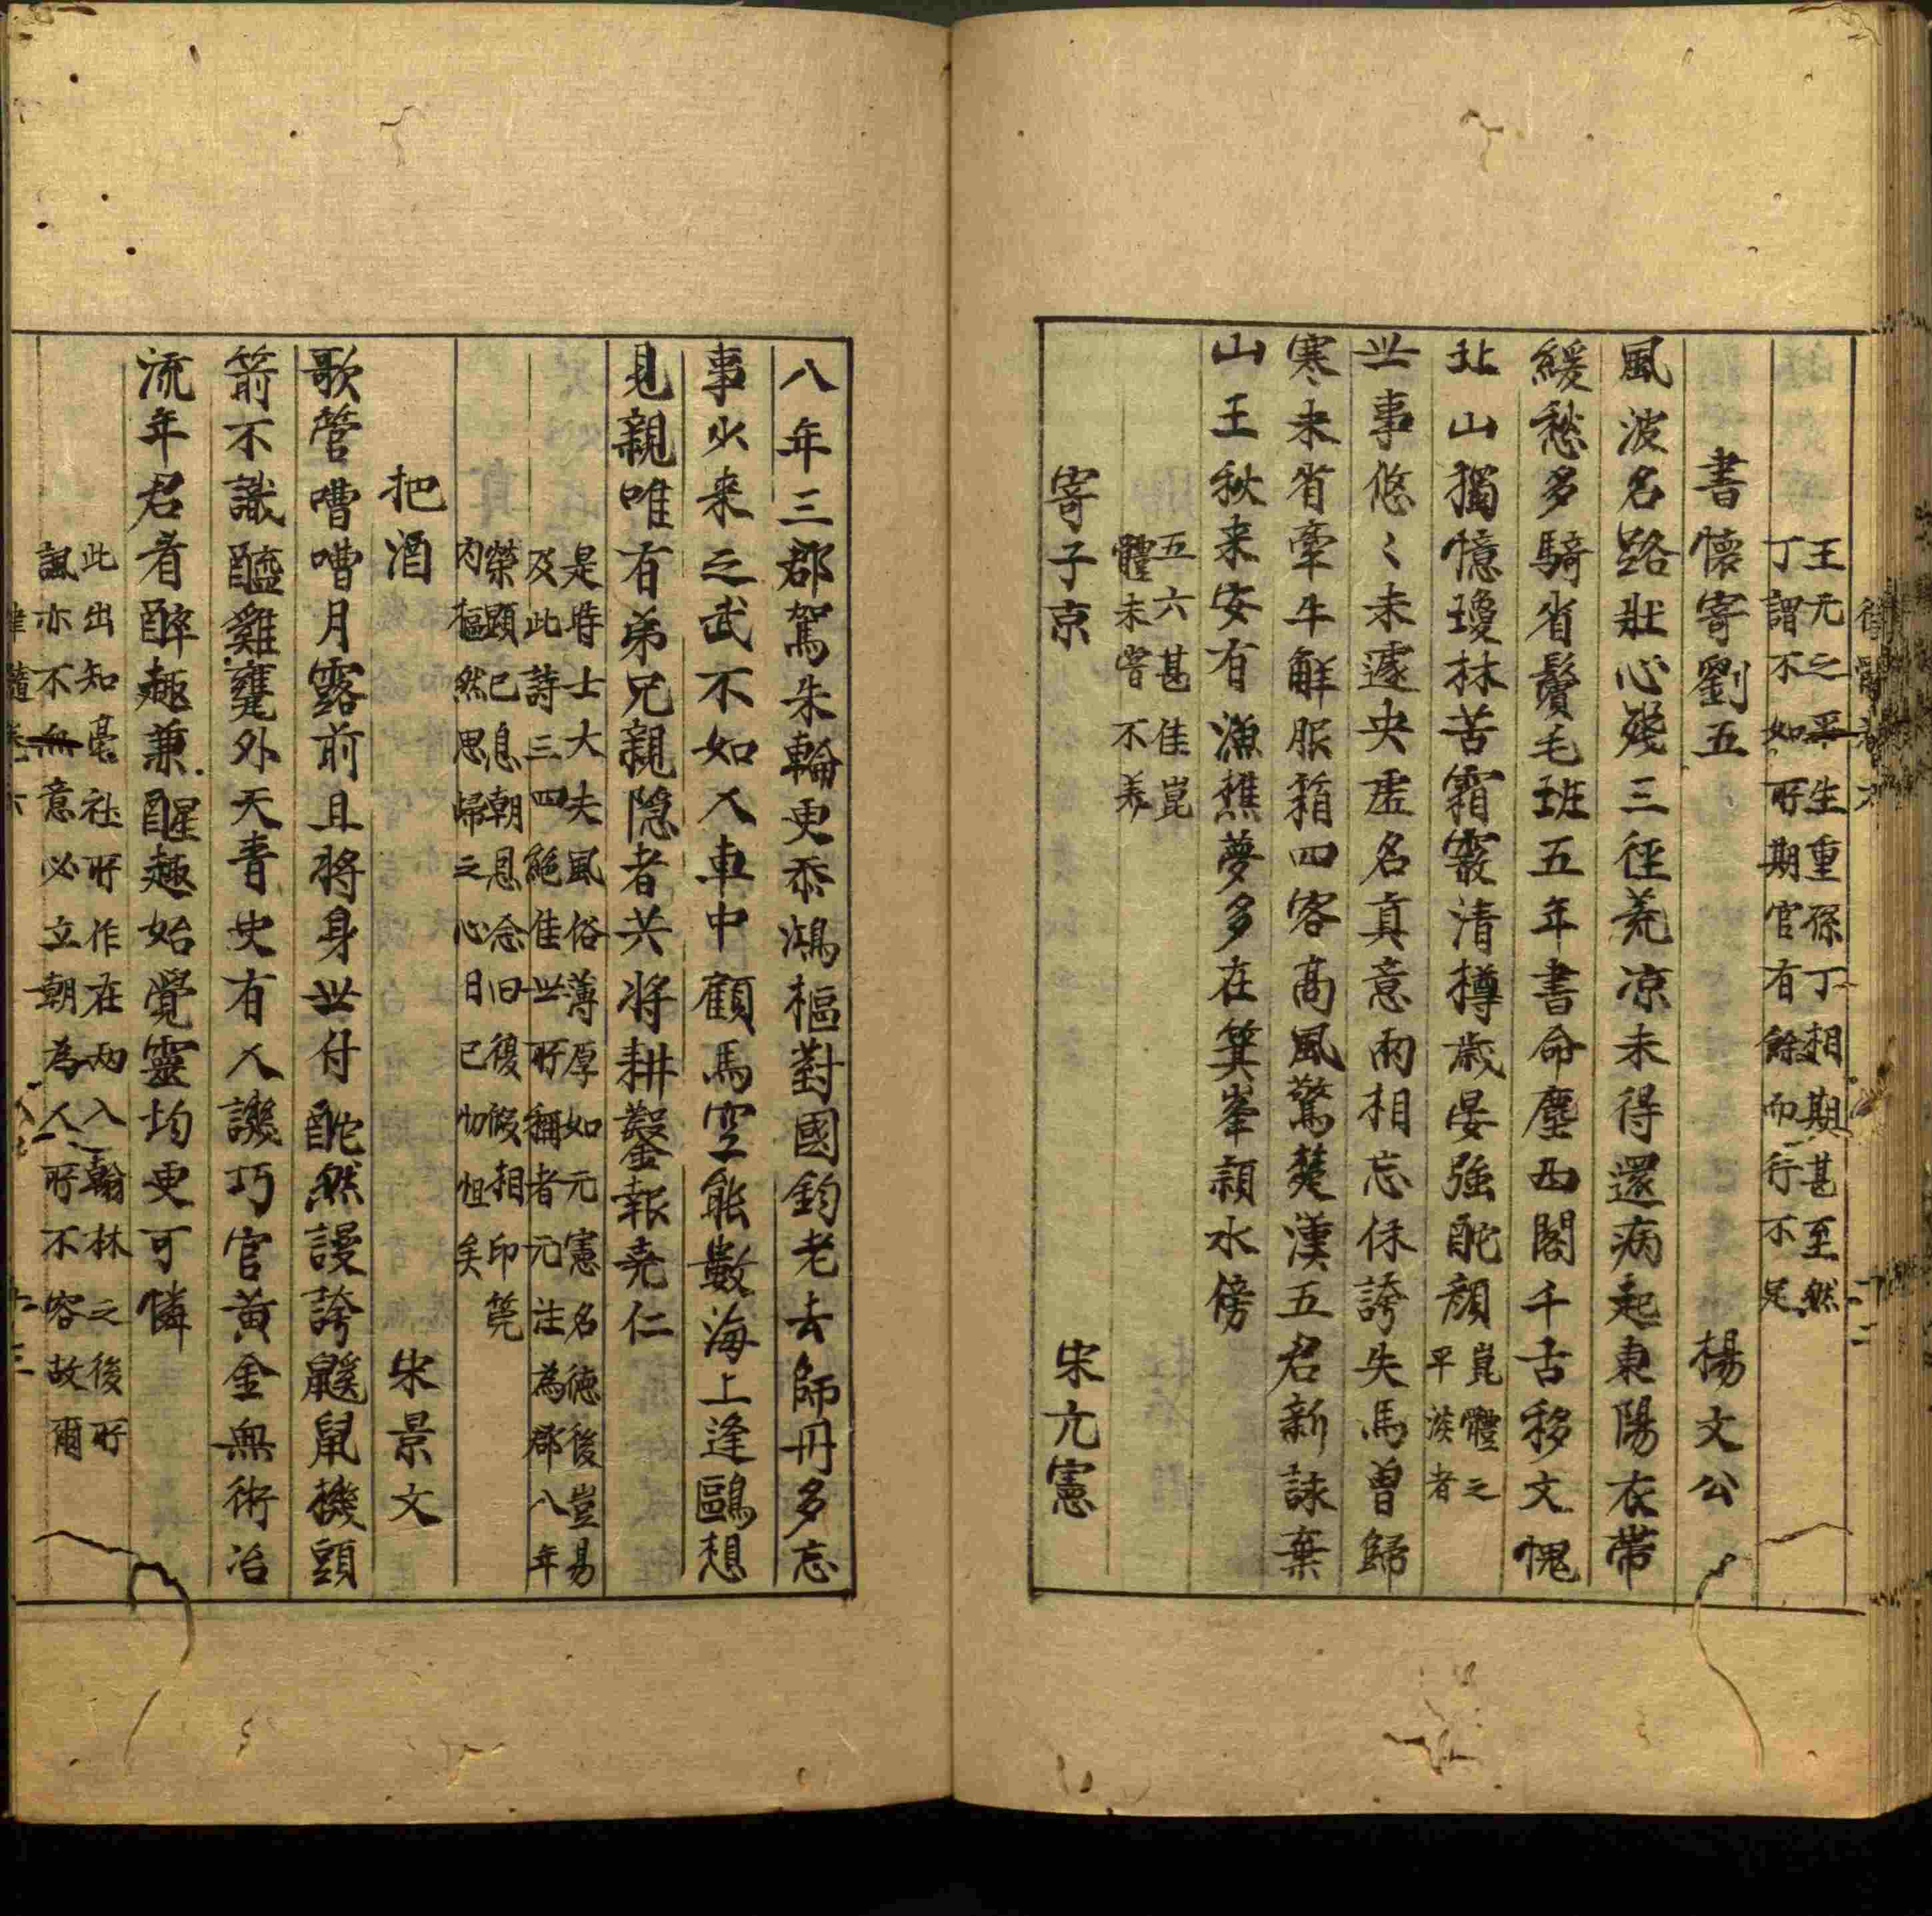 王元之平生重孫丁相期甚至然
丁謂不如所期官有餘而行不足
書懷寄劉五　楊文公
風波名路壯心殘三徑荒凉未得還病起東陽衣帶
緩愁多騎省鬢毛班五年書命塵西閣千古移文愧
北山獨憶瓊林苦霜霰清樽歳晏強酡顔崑體之
平淡者
世事悠〻未遽央虛名真意兩相忘休誇失馬曾歸
寒未省牽牛解服箱四客高風驚楚漢五君新詠棄
山王秋来安有漁樵夢多在箕峯潁水傍
五六甚佳崑
體未嘗不美
寄子京　宋元憲
八年三郡駕朱輪更忝鴻樞對國鈞老去師丹多忘
事少来之武不如人車中顧馬空能數海上逢鷗想
見親唯有弟兄親隐者共將耕鑿報堯仁
是時士大夫風俗薄厚如元憲名德後豈易
及此詩三四絶佳世所稱者元注為郡八年
榮顯已息朝恩念旧復假相印筦
内樞然思歸之心日已切怛矣
把酒　宋景文
歌管嘈嘈月露前且將身世付酡然謾誇鼷鼠機頭
箭不識醯雞甕外天青史有人譏巧官黃金無術冶
流年君看醉趣兼醒趣始覺靈均更可憐
此出知亳社所作在兩入翰林之後所
諷亦不無意必立朝為人所不容故爾